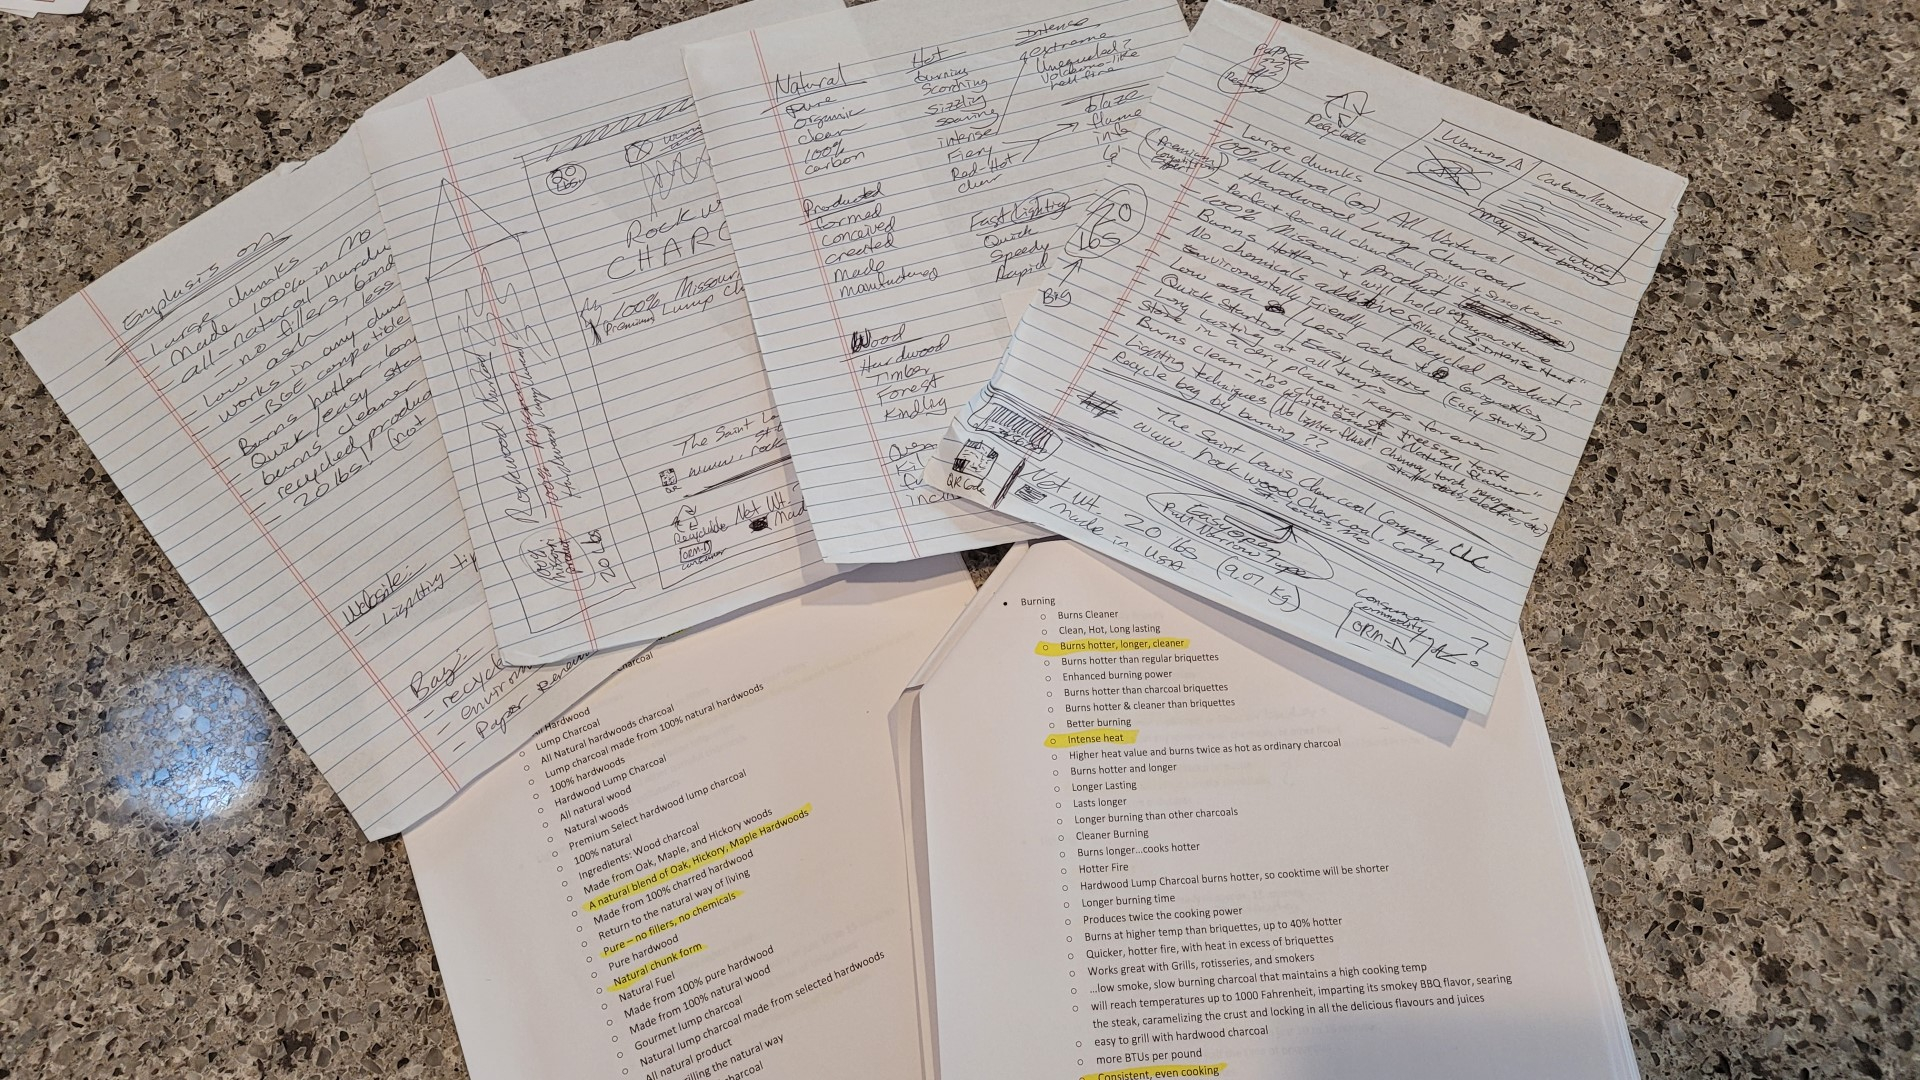 Emphasis on
- Large chunks
- Made 100% in
- All-natural
- no fillers,
- Low ash, less
- works in any
- BGE compatible
- Burns hotter
- Quick/easy
- burns cleaner
- recycled
- 20 lbs! (not
Website:
- Lighting
Bag:
- recycle
- Paper
20 LBS.
ROCKW
CHARC
100% Missour
Premium Lump
The Saint
www.rock
QR
Recyclable Net Wt.
Made
ORM-D
Rockwood Charcoal
Hardwood Lump Charcoal
100% Missouri product
20 lbs
Natural
pure
organic
clean
100%
carbon
Hot
burning
scorching
sizzling
searing
intense
Fiery
Red-Hot
Intense
extreme
Unequaled?
Volcano-like
hell fire
blaze
flame
Produced
formed
conceived
created
made
manufactured
Fast Lighting
Quick
Speedy
Rapid
Wood
Hardwood
Timber
Forest
Kindling
Recyclable
Warning
Carbon Monoxide
may spark
- Large chunks
- 100% Natural (or) All Natural
Hardwood Lump Charcoal
Premium
- Perfect for all charcoal grills + smokers
- 100% Missouri Product
- Burns Hotter + will hold temperature
- No chemicals additives fillers
"intense Heat"
- Environmentally Friendly / Recycled product?
- Low ash / Less ash
- Quick Starting / Easy Lighting (Easy Starting)
- Long lasting at all temps
- Store in a dry place - keeps for ever
- Burns clean - no chemical taste
- Lighting techniques (No lighter fluid!
- Recycle bag by burning ??
20 lbs
Big
The Saint Louis Charcoal Company, LLC
www.rockwoodcharcoal.com
St. Louis, MO
QR Code
Net wt. 20 lbs (9.07 Kg)
made in USA
Easy open
Consumer
Commodity
ORM-D
?
Hardwood
○ Lump Charcoal
○ All Natural hardwoods charcoal
○ Lump charcoal made from 100% natural hardwoods
○ 100% hardwoods
○ Hardwood Lump Charcoal
○ All natural wood
○ Natural woods
○ Premium Select hardwood lump charcoal
○ 100% natural
○ Ingredients: Wood charcoal
○ Made from Oak, Maple, and Hickory woods
○ A natural blend of Oak, Hickory, Maple Hardwoods
○ Made from 100% charred hardwood
○ Return to the natural way of living
○ Pure – no fillers, no chemicals
○ Pure hardwood
○ Natural chunk form
○ Natural Fuel
○ Made from 100% pure hardwood
○ Made from 100% natural wood
○ Gourmet lump charcoal
○ Natural lump charcoal made from selected hardwoods
○ All natural product
○ rilling the natural way
harcoal
• Burning
○ Burns Cleaner
○ Clean, Hot, Long lasting
○ Burns hotter, longer, cleaner
○ Burns hotter than regular briquettes
○ Enhanced burning power
○ Burns hotter than charcoal briquettes
○ Burns hotter & cleaner than briquettes
○ Better burning
○ Intense heat
○ Higher heat value and burns twice as hot as ordinary charcoal
○ Burns hotter and longer
○ Longer Lasting
○ Lasts longer
○ Longer burning than other charcoals
○ Cleaner Burning
○ Burns longer...cooks hotter
○ Hotter Fire
○ Hardwood Lump Charcoal burns hotter, so cooktime will be shorter
○ Longer burning time
○ Produces twice the cooking power
○ Burns at higher temp than briquettes, up to 40% hotter
○ Quicker, hotter fire, with heat in excess of briquettes
○ Works great with Grills, rotisseries, and smokers
○ ...low smoke, slow burning charcoal that maintains a high cooking temp
○ will reach temperatures up to 1000 Fahrenheit, imparting its smokey BBQ flavor, searing
the steak, caramelizing the crust and locking in all the delicious flavours and juices
○ easy to grill with hardwood charcoal
○ more BTUs per pound
○ Consistent, even cooking